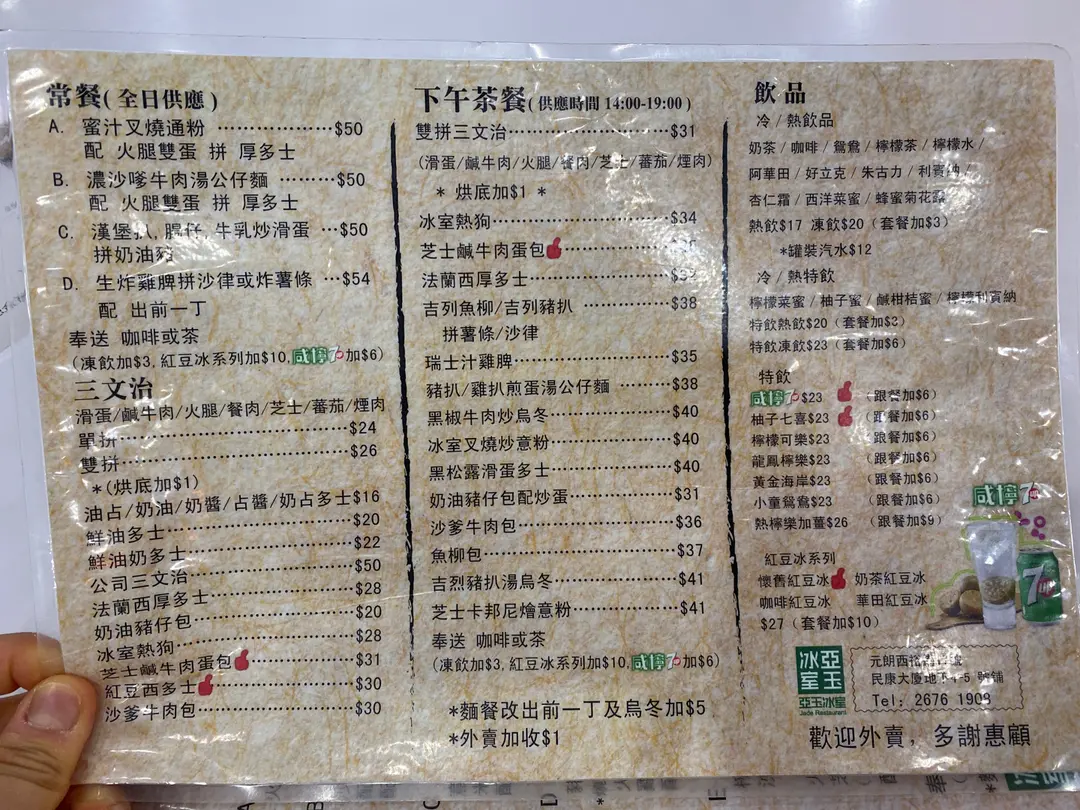 常餐(全日供應)
A. 蜜汁叉燒通粉 ………………$50
配 火腿雙蛋 拼 厚多士
B. 濃沙嗲牛肉湯公仔麵 ………$50
配 火腿雙蛋 拼 厚多士
C. 漢堡扒,腸仔,牛乳炒滑蛋 …$50
拼奶油豬
D. 生炸雞脾拼沙律或炸薯條 …$54
配 出前一丁
奉送 咖啡或茶
(凍飲加$3,紅豆冰系列加$10,咸檸7加$6)
三文治
滑蛋/鹹牛肉/火腿/餐肉/芝士/蕃茄/煙肉
單拼………………………………$24
雙拼………………………………$26
*(烘底加$1)
油占/奶油/奶醬/占醬/奶占多士$16
鮮油多士…………………………$20
鮮油奶多士………………………$22
公司三文治………………………$50
法蘭西厚多士……………………$28
奶油豬仔包………………………$20
冰室熱狗…………………………$28
芝士鹹牛肉蛋包………………$31
紅豆西多士……………………$30
沙爹牛肉包………………………$30
下午茶餐(供應時間 14:00-19:00)
雙拼三文治………………………$31
(滑蛋/鹹牛肉/火腿/餐肉/芝士/蕃茄/煙肉)
* 烘底加$1 *
冰室熱狗…………………………$34
芝士鹹牛肉蛋包………………
法蘭西厚多士……………………
吉列魚柳/吉列豬扒 ……………$38
拼薯條/沙律
瑞士汁雞脾………………………$35
豬扒/雞扒煎蛋湯公仔麵 ………$38
黑椒牛肉炒烏冬…………………$40
冰室叉燒炒意粉…………………$40
黑松露滑蛋多士…………………$40
奶油豬仔包配炒蛋………………$31
沙爹牛肉包………………………$36
魚柳包……………………………$37
吉烈豬扒湯烏冬…………………$41
芝士卡邦尼燴意粉………………$41
奉送 咖啡或茶
(凍飲加$3,紅豆冰系列加$10,咸檸7加$6)
*麵餐改出前一丁及烏冬加$5
*外賣加收$1
飲品
冷/熱飲品
奶茶/咖啡/鴛鴦/檸檬茶/檸檬水/
阿華田/好立克/朱古力/利賓納/
杏仁霜/西洋菜蜜/蜂蜜菊花露
熱飲$17 凍飲$20(套餐加$3)
*罐裝汽水$12
冷/熱特飲
檸檬菜蜜/柚子蜜/鹹柑桔蜜/檸檬利賓納
特飲熱飲$20(套餐加$3)
特飲凍飲$23(套餐加$6)
特飲
咸檸7$23 (跟餐加$6)
柚子七喜$23 (跟餐加$6)
檸檬可樂$23 (跟餐加$6)
龍鳳檸樂$23 (跟餐加$6)
黃金海岸$23 (跟餐加$6)
小童鴛鴦$23 (跟餐加$6)
熱檸樂加薑$26 (跟餐加$9)
咸檸7
紅豆冰系列
懷舊紅豆冰 奶茶紅豆冰
咖啡紅豆冰 華田紅豆冰
$27(套餐加$10)
7
亞玉冰室
亞玉冰室
Jade Restaurant
元朗西
民康大廈地下4-5 號舖
Tel: 2676 1908
歡迎外賣,多謝惠顧